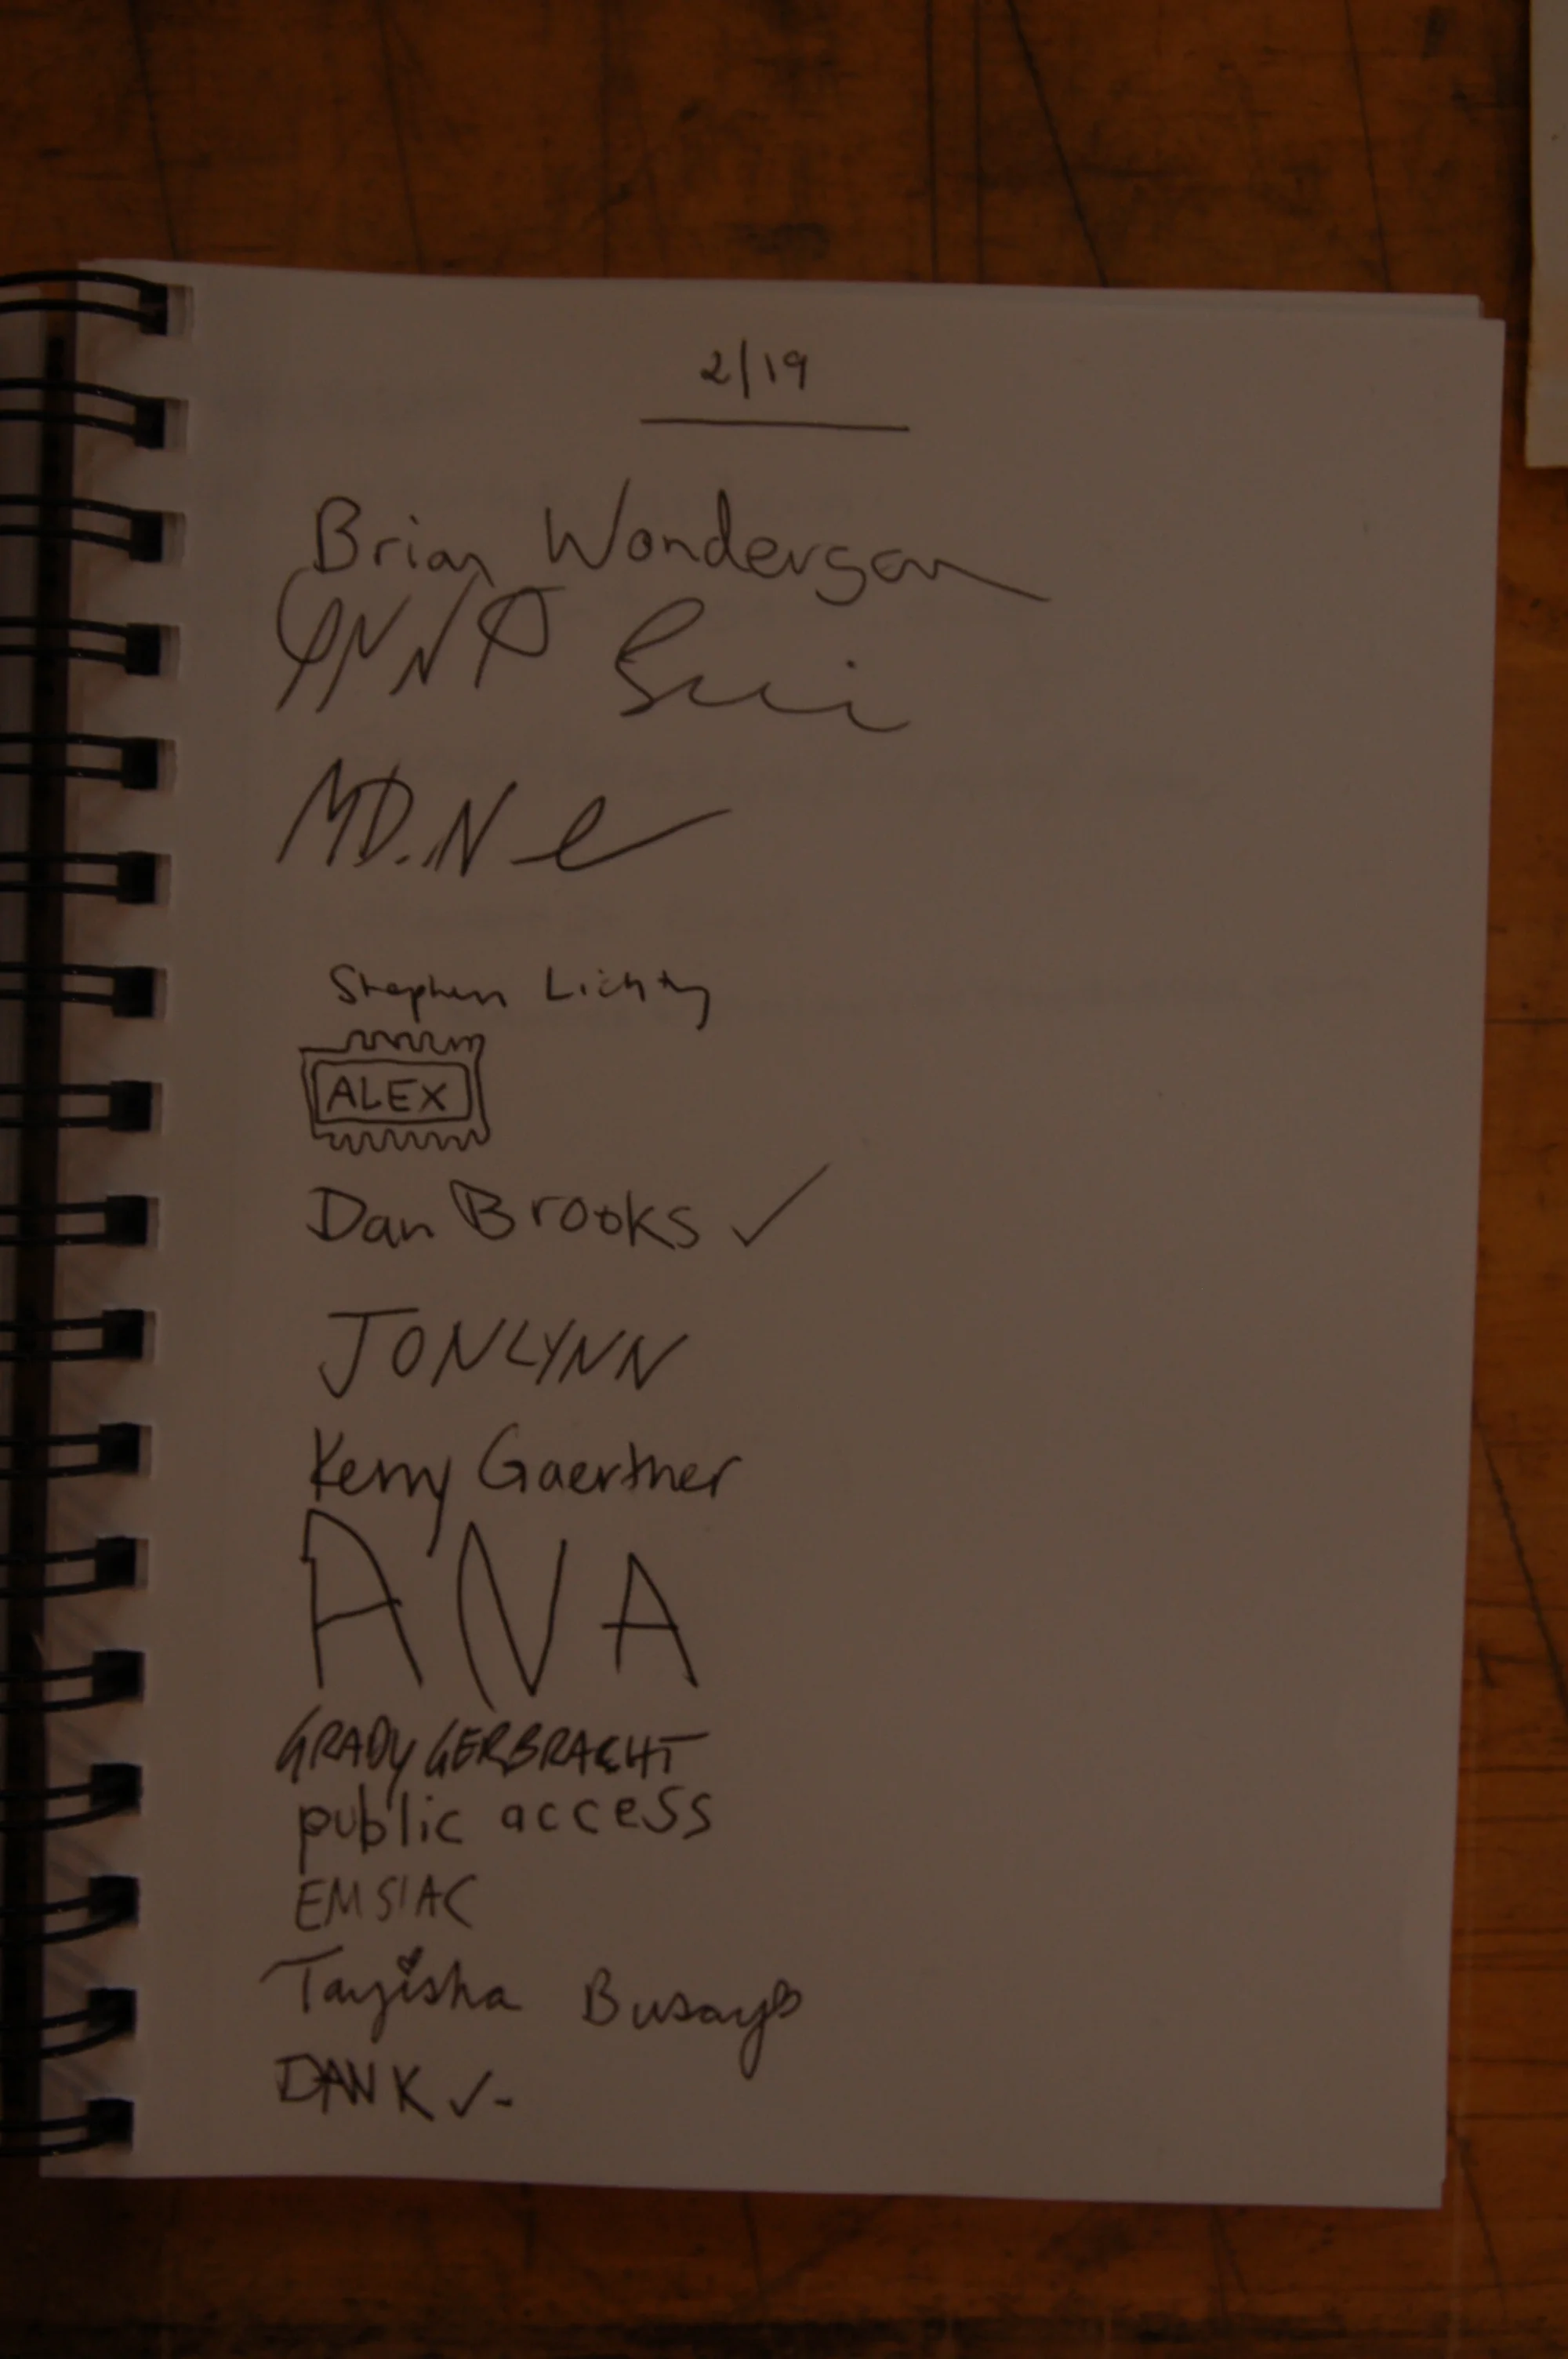 2/19
Brian Wonderson
MD.N
Stephen Lichty
ALEX
Dan Brooks ✓
JONLYNN
Kerry Gaertner
ANA
GRADY GERBRACHT
public access
EMSIAC
Tayisha Busayo
DAN K ✓-